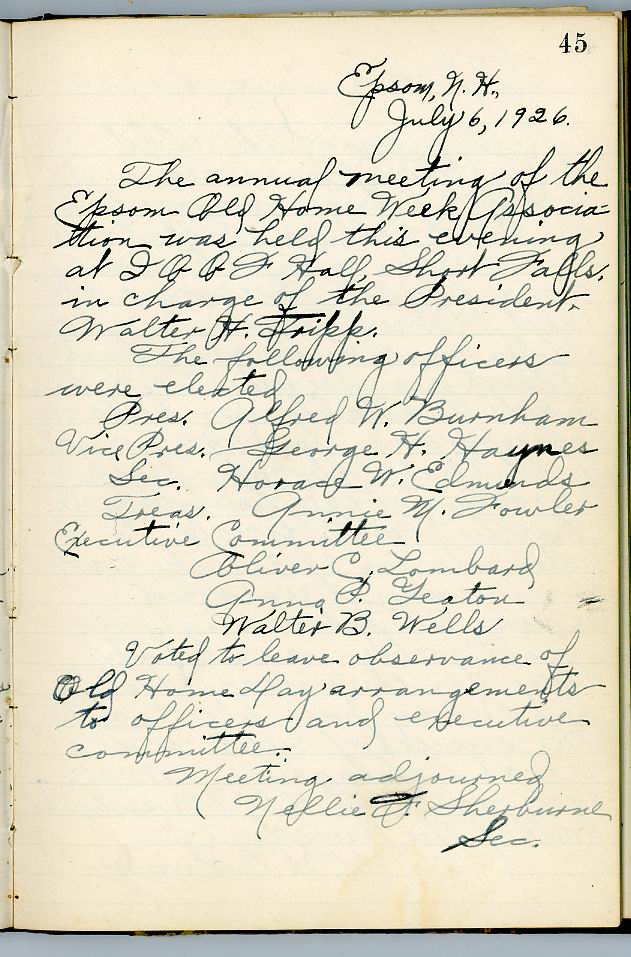 45
Epsom, N. H.,
July 6, 1926.
The annual meeting of the
Epsom Old Home Week Associa=
tion was held this evening
at I O O F Hall, Short Falls,
in charge of the President,
Walter H. Tripp.
The following officers
were elected
Pres. Alfred W. Burnham
Vice Pres. George H. Haynes
Sec. Horace W. Edmunds
Treas. Annie M. Fowler
Executive Committee
Oliver C. Lombard
Anna P. Yeaton
Walter B. Wells
Voted to leave observance of
Old Home Day arrangements
to officers and executive
committee.
Meeting adjourned
Nellie F. Sherburne
Sec.